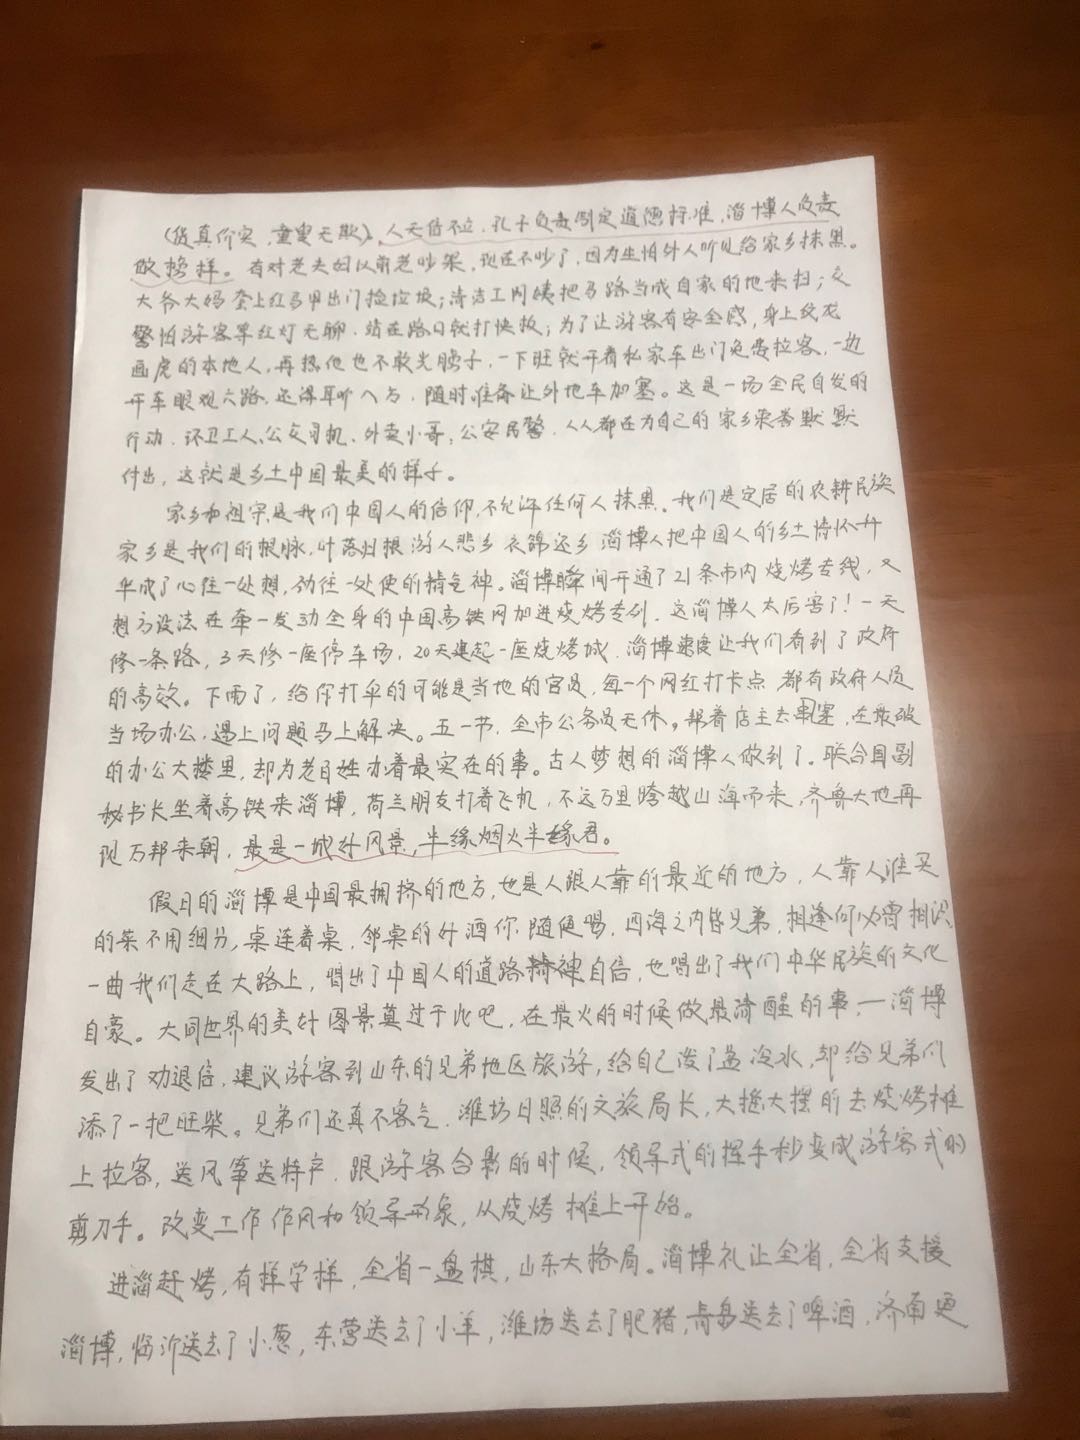 （货真价实，童叟无欺）。人无信不立，孔子负责制定道德标准，淄博人负责
做榜样。有对老夫妇以前老吵架，现在不吵了，因为生怕外人听见给家乡抹黑。
大爷大妈套上红马甲出门捡垃圾；清洁工阿姨把马路当成自家的地来扫；交
警怕游客等红灯无聊，站在路口就打快板；为了让游客有安全感，身上纹龙
画虎的本地人，再热他也不敢光膀子，一下班就开着私家车出门免费拉客，一边
开车眼观六路，还得耳听八方，随时准备让外地车加塞。这是一场全民自发的
行动，环卫工人、公交司机、外卖小哥，公安民警，人人都在为自己的家乡荣誉默默
付出，这就是乡土中国最美的样子。
家乡和祖宗是我们中国人的信仰，不允许任何人抹黑。我们是定居的农耕民族
家乡是我们的根脉，叶落归根 游人悲乡 衣锦还乡 淄博人把中国人的乡土情怀升
华成了心往一处想，劲往一处使的精气神。淄博瞬间开通了21条市内烧烤专线，又
想方设法在牵一发动全身的中国高铁网加进烧烤专列，这淄博人太厉害了！一天
修一条路，3天修一座停车场，20天建起一座烧烤城，淄博速度让我们看到了政府
的高效。下雨了，给你打伞的可能是当地的官员，每一个网红打卡点 都有政府人员
当场办公，遇上问题马上解决。五一节，全市公务员无休。帮着店主去串，在最破
的办公大楼里，却为老百姓办着最实在的事。古人梦想的淄博人做到了。联合国副
秘书长坐着高铁来淄博，荷兰朋友打着飞机，不远万里跨越山海而来，齐鲁大地再
现万邦来朝，最是一城好风景，半缘烟火半缘君。
假日的淄博是中国最拥挤的地方，也是人跟人靠的最近的地方，人靠人谁买
的菜不用细分，桌连着桌，邻桌的好酒你随便喝，四海之内皆兄弟，相逢何必曾相识
一曲我们走在大路上，唱出了中国人的道路精神自信，也唱出了我们中华民族的文化
自豪。大同世界的美好图景莫过于此吧，在最火的时候做最清醒的事，一淄博
发出了劝退信，建议游客到山东的兄弟地区旅游，给自己泼了盆冷水，却给兄弟们
添了一把旺柴。兄弟们还真不客气，潍坊日照的文旅局长，大摇大摆的去烧烤摊
上拉客，送风筝送特产，跟游客合影的时候，领导式的挥手秒变成游客式的
剪刀手。改变工作作风和领导形象，从烧烤摊上开始。
进淄赶烤，有样学样，全省一盘棋，山东大格局。淄博礼让全省，全省支援
淄博，临沂送去了小葱，东营送去了小羊，潍坊送去了肥猪，青岛送去了啤酒，济南更